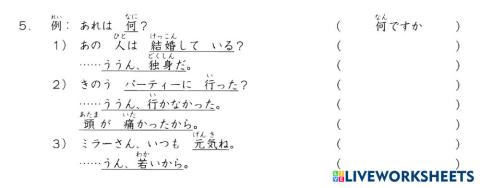 5． 例： あれは 何？ （ 何ですか ）
1） あの 人は 結婚して いる？ （ ）
……ううん、独身だ。 （ ）
2） きのう パーティーに 行った？ （ ）
……ううん、行かなかった。 （ ）
頭が 痛かったから。 （ ）
3） ミラーさん、いつも 元気ね。 （ ）
……うん、若いから。 （ ）
LIVEWORKSHEETS